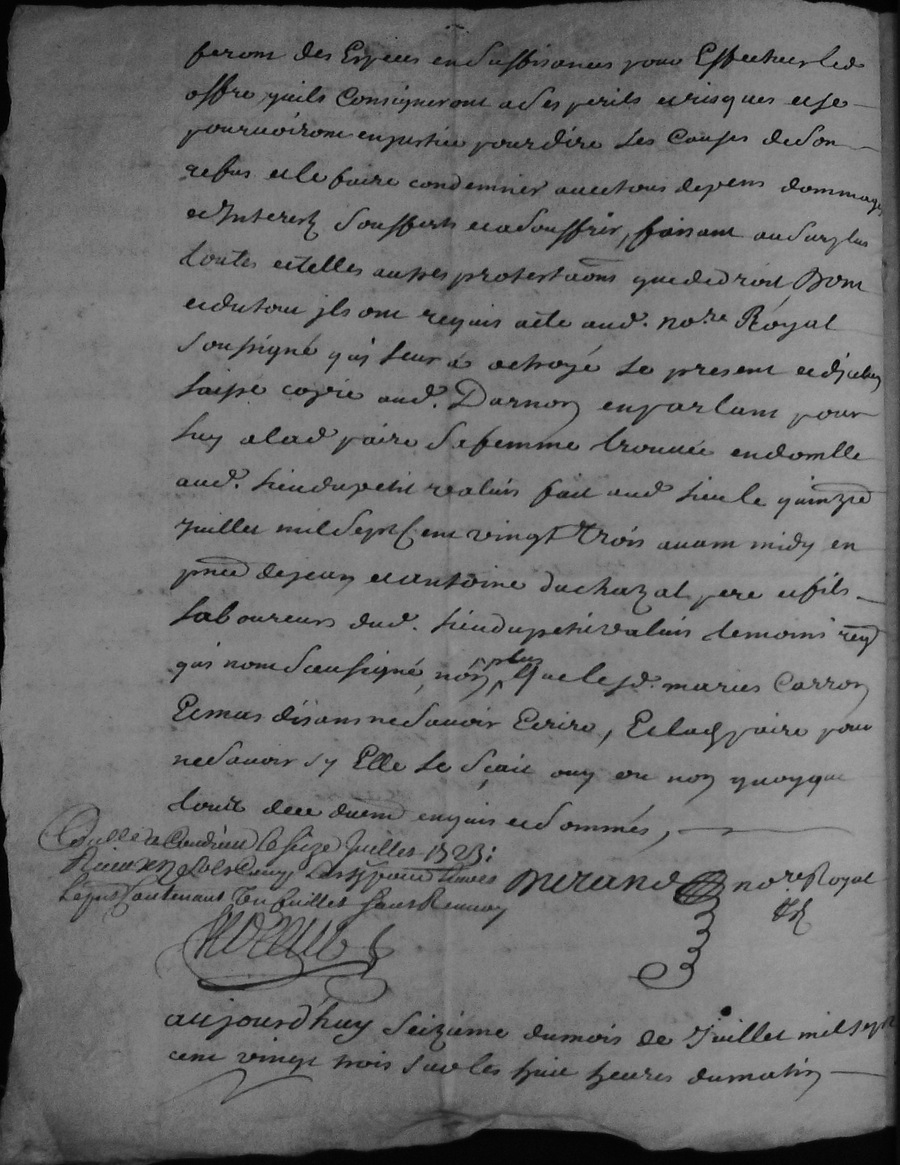 feront des Especes en Suffisances pour Effectuer led
offre quils Consigneront a Ses perils et risques et se
pourvoiront en justice pour dire les Causes de Son
refus et le faire condemner avec tous depens dommages
et Interest Soufferts et a Souffrir, faisant au Surplus
toutes et telles autres protestaons que de droit, Dont
et du tout jls ont requis acte aud. nore Royal
Soussigné qui leur a octroyé le present et dicelluy
laissé copie aud. Darnon en parlant pour
luy a lad paire Sa femme trouvée en domlle
aud. lieu du petit valuis fait aud lieu le quinzre
Juillet mil Sept Cent vingt Trois avant midy en
pnce de jean et antoine duchazal pere et fils
laboureurs dud. lieu du petit valuis temoins req
qui nont Soussigné, non plus que lesd. maries Carron
Et mas disans ne Savoir Ecrire, Et lad paire pour
ne Savoir Sy Elle le Sçait ouy ou non quoyque
tout de ce duemt enquis et Sommés,
Controllé a Condrieu le Seize Juillet 1723:
Reçu
Le pnt Contenant Un fueillet Sans Renvoy
Merand nore Royal
aujourd'huy Seizième du mois de Juillet mil Sept
cent vingt trois Sur les huit heures du matin